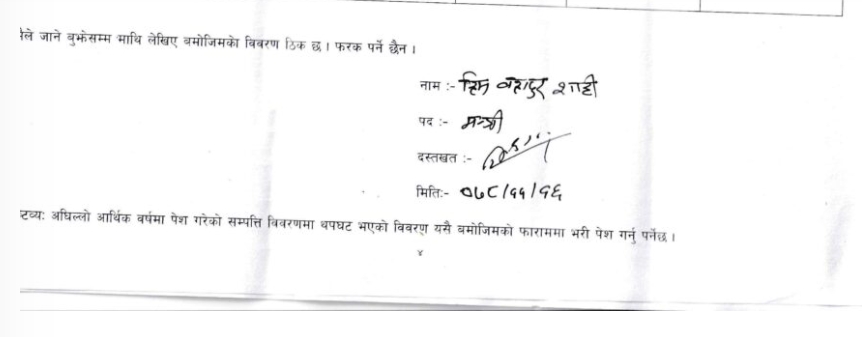 मैले जाने बुझेसम्म माथि लेखिए बमोजिमको विवरण ठिक छ । फरक पर्ने छैन ।
नाम :- हिम बहादुर शाही
पद :- मन्त्री
दस्तखत :-
मितिः- ०७८/११/१६
ष्टव्यः अघिल्लो आर्थिक वर्षमा पेश गरेको सम्पत्ति विवरणमा थपघट भएको विवरण यसै बमोजिमको फाराममा भरी पेश गर्नु पर्नेछ ।
४